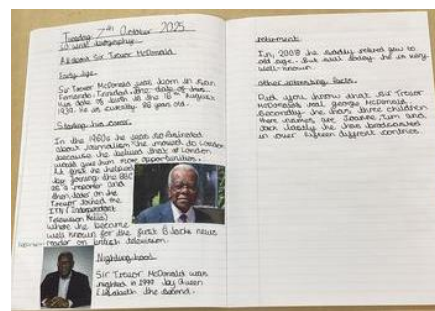 Tuesday 7th October 2025
LO write biography
All about Sir Trevor McDonald
Early life
Sir Trevor McDonald was born in San
Fernando, Trinidad. The date of his
his date of birth is the 16th August
1939. He is currently 86 years old.
Starting his career
In the 1960s he was so fascinated
about journalism he moved to London
because he believed that London
would give him more opportunities.
At first he helped
by joining the BBC
as a reporter and
then later on the
Trevor joined the
ITN (Independent
Television News)
where he became
well known for the first black news
reader on british television.
Knighthood
Sir Trevor McDonald was
knighted in 1999 by Queen
Elizabeth the second.
retirement
In, 2008 he sadly retired due to
old age. But still today he is very
well-known.
other interesting facts.
Did you know that Sir Trevor
McDonalds real george McDonald.
Secondly he has three children
there names are Joanne, Tim and
Jack lastly he has broadcasted
in over fifteen different contries.